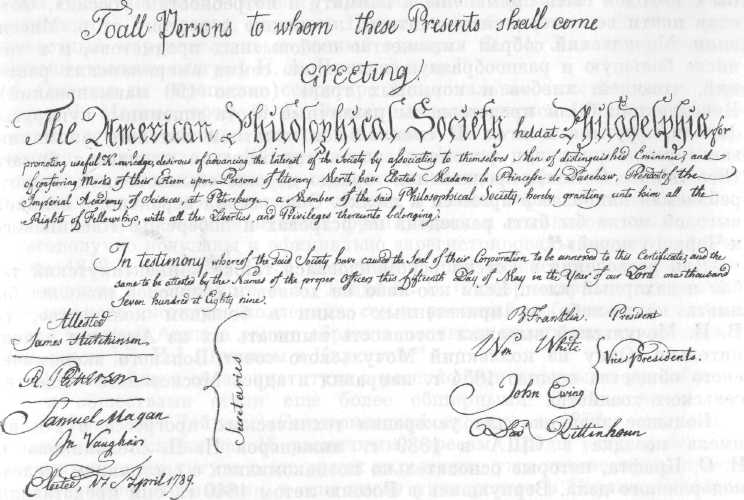 To all Persons to whom these Presents shall come
Greeting
The American Philosophical Society held at Philadelphia for
promoting useful Knowledge, desirous of advancing the Interest of the Society by associating to themselves Men of distinguished Eminence, and
of conferring Marks of their Esteem upon Persons of literary Merit, have Elected Madame la Princesse de Daschaw, President of the
Imperial Academy of Sciences, at Petersburg a Member of the said Philosophical Society, hereby granting unto him all the
Rights of Fellowship, with all the Liberties and Privileges thereunto belonging.
In Testimony whereof the said Society have caused the Seal of their Corporation to be annexed to this Certificate, and the
same to be attested by the Names of the proper Officers this fifteenth Day of May in the Year of our Lord one thousand
Seven hundred at Eighty nine.
Attested
James Hutchinson
R. Patterson
Samuel Magan
Jn. Vaughan
Secretaries
Elected 17 April 1789.
B Franklin. President
Wm White
John Ewing
Vice Presidents.
Davd Rittenhouse